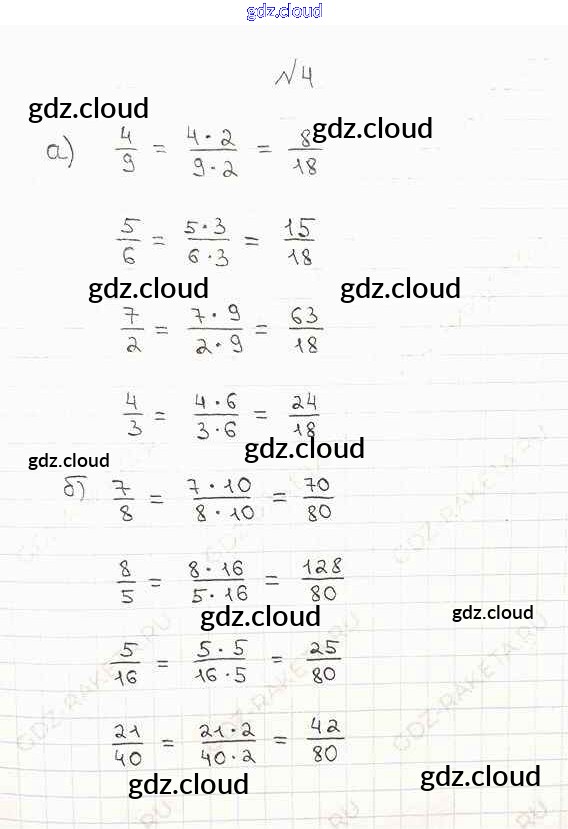 gdz.cloud
№4
gdz.cloud gdz.cloud
а) 4/9 = 4·2/9·2 = 8/18
5/6 = 5·3/6·3 = 15/18
gdz.cloud gdz.cloud
7/2 = 7·9/2·9 = 63/18
4/3 = 4·6/3·6 = 24/18
gdz.cloud gdz.cloud
б) 7/8 = 7·10/8·10 = 70/80
GDZ-RAKETA.RU
8/5 = 8·16/5·16 = 128/80
gdz.cloud gdz.cloud
5/16 = 5·5/16·5 = 25/80
GDZ-RAKETA.RU GDZ-RAKETA.RU
21/40 = 21·2/40·2 = 42/80
gdz.cloud gdz.cloud